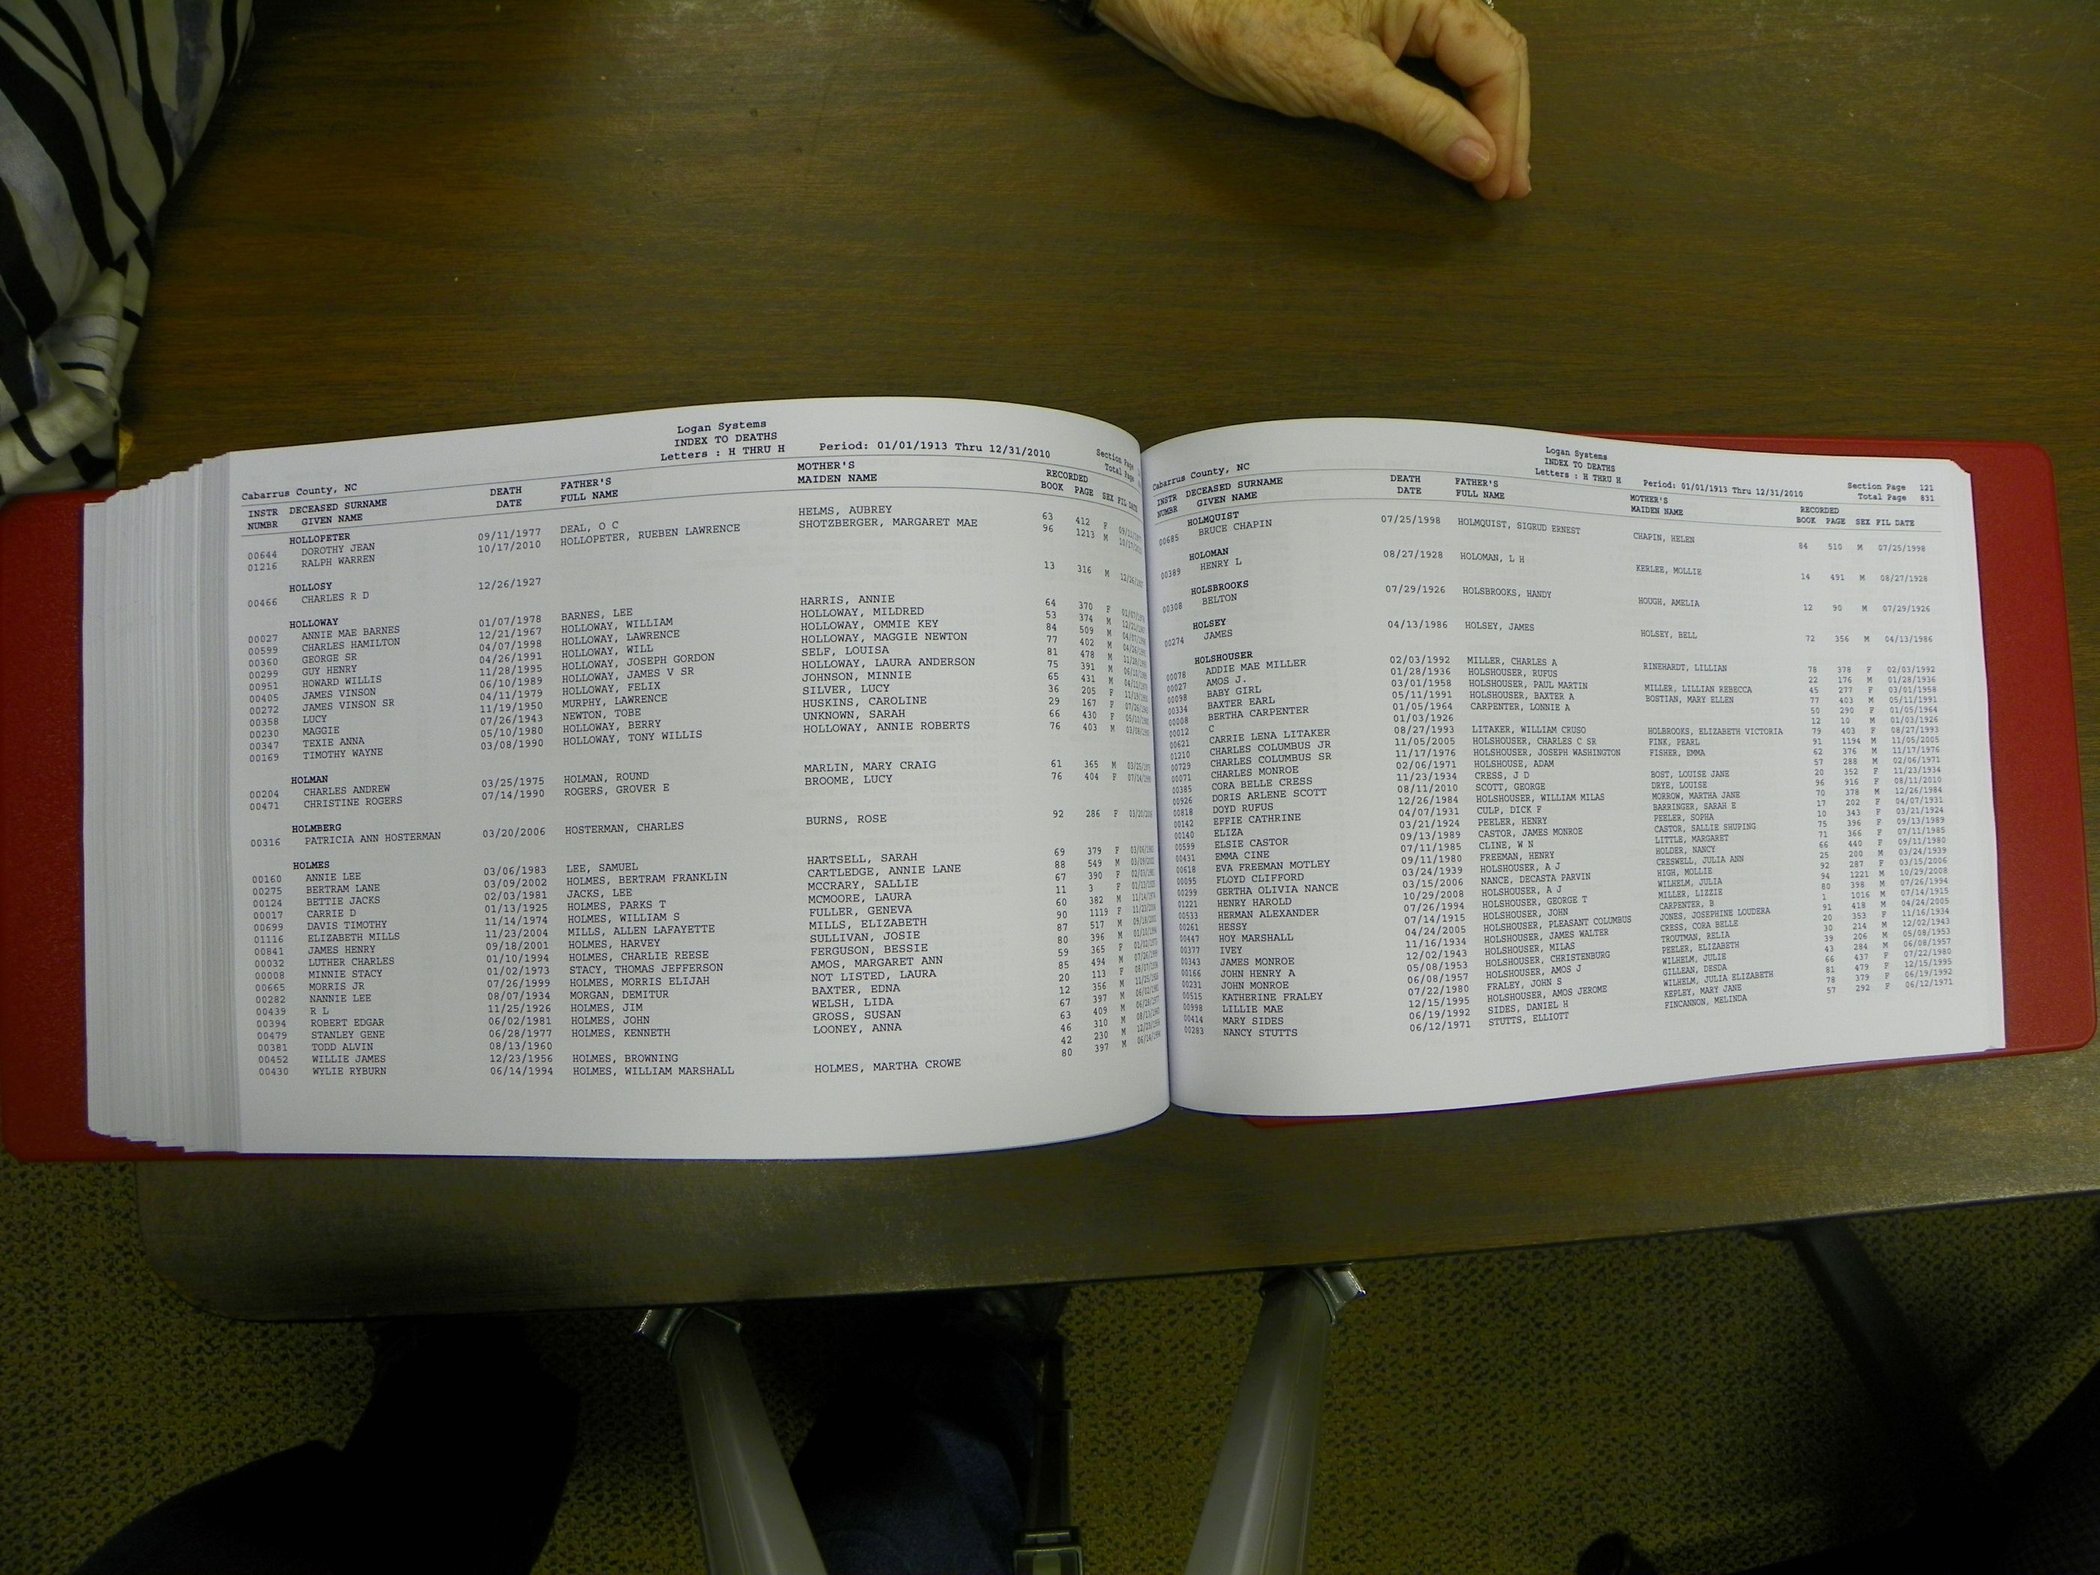 Logan Systems
INDEX TO DEATHS
Letters : H THRU H Period: 01/01/1913 Thru 12/31/2010
Section Page
Total Page
Cabarrus County, NC
INSTR DECEASED SURNAME DEATH FATHER'S MOTHER'S RECORDED
NUMBR GIVEN NAME DATE FULL NAME MAIDEN NAME BOOK PAGE SEX FIL DATE
HOLLOPETER
00644 DOROTHY JEAN 09/11/1977 DEAL, O C HELMS, AUBREY 63 412 F
01216 RALPH WARREN 10/17/2010 HOLLOPETER, RUEBEN LAWRENCE SHOTZBERGER, MARGARET MAE 96 1213 M
HOLLOSY
00466 CHARLES R D 12/26/1927 13 316 M
HOLLOWAY
00027 ANNIE MAE BARNES 01/07/1978 BARNES, LEE HARRIS, ANNIE 64 370 F
00599 CHARLES HAMILTON 12/21/1967 HOLLOWAY, WILLIAM HOLLOWAY, MILDRED 53 374 M
00360 GEORGE SR 04/07/1998 HOLLOWAY, LAWRENCE HOLLOWAY, OMMIE KEY 84 509 M
00299 GUY HENRY 04/26/1991 HOLLOWAY, WILL HOLLOWAY, MAGGIE NEWTON 77 402 M
00951 HOWARD WILLIS 11/28/1995 HOLLOWAY, JOSEPH GORDON SELF, LOUISA 81 478 M
00405 JAMES VINSON 06/10/1989 HOLLOWAY, JAMES V SR HOLLOWAY, LAURA ANDERSON 75 391 M
00272 JAMES VINSON SR 04/11/1979 HOLLOWAY, FELIX JOHNSON, MINNIE 65 431 M
00358 LUCY 11/19/1950 MURPHY, LAWRENCE SILVER, LUCY 36 205 F
00230 MAGGIE 07/26/1943 NEWTON, TOBE HUSKINS, CAROLINE 29 167 F
00347 TEXIE ANNA 05/10/1980 HOLLOWAY, BERRY UNKNOWN, SARAH 66 430 F
00169 TIMOTHY WAYNE 03/08/1990 HOLLOWAY, TONY WILLIS HOLLOWAY, ANNIE ROBERTS 76 403 M
HOLMAN
00204 CHARLES ANDREW 03/25/1975 HOLMAN, ROUND MARLIN, MARY CRAIG 61 365 M
00471 CHRISTINE ROGERS 07/14/1990 ROGERS, GROVER E BROOME, LUCY 76 404 F
HOLMBERG
00316 PATRICIA ANN HOSTERMAN 03/20/2006 HOSTERMAN, CHARLES BURNS, ROSE 92 286 F
HOLMES
00160 ANNIE LEE 03/06/1983 LEE, SAMUEL HARTSELL, SARAH 69 379 F
00275 BERTRAM LANE 03/09/2002 HOLMES, BERTRAM FRANKLIN CARTLEDGE, ANNIE LANE 88 549 M
00124 BETTIE JACKS 02/03/1981 JACKS, LEE MCCRARY, SALLIE 67 390 F
00017 CARRIE D 01/13/1925 HOLMES, PARKS T MCMOORE, LAURA 11 3 F
00699 DAVIS TIMOTHY 11/14/1974 HOLMES, WILLIAM S FULLER, GENEVA 60 382 M
01116 ELIZABETH MILLS 11/23/2004 MILLS, ALLEN LAFAYETTE MILLS, ELIZABETH 90 1119 F
00841 JAMES HENRY 09/18/2001 HOLMES, HARVEY SULLIVAN, JOSIE 87 517 M
00032 LUTHER CHARLES 01/10/1994 HOLMES, CHARLIE REESE FERGUSON, BESSIE 80 396 M
00008 MINNIE STACY 01/02/1973 STACY, THOMAS JEFFERSON AMOS, MARGARET ANN 59 365 F
00665 MORRIS JR 07/26/1999 HOLMES, MORRIS ELIJAH NOT LISTED, LAURA 85 494 M
00282 NANNIE LEE 08/07/1934 MORGAN, DEMITUR BAXTER, EDNA 20 113 F
00439 R L 11/25/1926 HOLMES, JIM WELSH, LIDA 12 356 M
00394 ROBERT EDGAR 06/02/1981 HOLMES, JOHN GROSS, SUSAN 67 397 M
00479 STANLEY GENE 06/28/1977 HOLMES, KENNETH LOONEY, ANNA 63 409 M
00381 TODD ALVIN 08/13/1960 46 310 M
00452 WILLIE JAMES 12/23/1956 HOLMES, BROWNING 42 230 M
00430 WYLIE RYBURN 06/14/1994 HOLMES, WILLIAM MARSHALL HOLMES, MARTHA CROWE 80 397 M
Logan Systems
INDEX TO DEATHS
Letters : H THRU H Period: 01/01/1913 Thru 12/31/2010
Section Page 121
Total Page 831
Cabarrus County, NC
INSTR DECEASED SURNAME DEATH FATHER'S MOTHER'S RECORDED
NUMBR GIVEN NAME DATE FULL NAME MAIDEN NAME BOOK PAGE SEX FIL DATE
HOLMQUIST
00685 BRUCE CHAPIN 07/25/1998 HOLMQUIST, SIGRUD ERNEST CHAPIN, HELEN 84 510 M 07/25/1998
HOLOMAN
00389 HENRY L 08/27/1928 HOLOMAN, L H KERLEE, MOLLIE 14 491 M 08/27/1928
HOLSBROOKS
00308 BELTON 07/29/1926 HOLSBROOKS, HANDY HOUGH, AMELIA 12 90 M 07/29/1926
HOLSEY
00274 JAMES 04/13/1986 HOLSEY, JAMES HOLSEY, BELL 72 356 M 04/13/1986
HOLSHOUSER
00078 ADDIE MAE MILLER 02/03/1992 MILLER, CHARLES A RINEHARDT, LILLIAN 78 378 F 02/03/1992
00027 AMOS J. 01/28/1936 HOLSHOUSER, RUFUS 22 176 M 01/28/1936
00098 BABY GIRL 03/01/1958 HOLSHOUSER, PAUL MARTIN MILLER, LILLIAN REBECCA 45 277 F 03/01/1958
00334 BAXTER EARL 05/11/1991 HOLSHOUSER, BAXTER A BOSTIAN, MARY ELLEN 77 403 M 05/11/1991
00008 BERTHA CARPENTER 01/05/1964 CARPENTER, LONNIE A 50 290 F 01/05/1964
00012 C 01/03/1926 12 10 M 01/03/1926
00621 CARRIE LENA LITAKER 08/27/1993 LITAKER, WILLIAM CRUSO HOLBROOKS, ELIZABETH VICTORIA 79 403 F 08/27/1993
01210 CHARLES COLUMBUS JR 11/05/2005 HOLSHOUSER, CHARLES C SR FINK, PEARL 91 1194 M 11/05/2005
00729 CHARLES COLUMBUS SR 11/17/1976 HOLSHOUSER, JOSEPH WASHINGTON FISHER, EMMA 62 376 M 11/17/1976
00071 CHARLES MONROE 02/06/1971 HOLSHOUSE, ADAM 57 288 M 02/06/1971
00385 CORA BELLE CRESS 11/23/1934 CRESS, J D BOST, LOUISE JANE 20 352 F 11/23/1934
00926 DORIS ARLENE SCOTT 08/11/2010 SCOTT, GEORGE DRYE, LOUISE 96 916 F 08/11/2010
00818 DOYD RUFUS 12/26/1984 HOLSHOUSER, WILLIAM MILAS MORROW, MARTHA JANE 70 378 M 12/26/1984
00142 EFFIE CATHRINE 04/07/1931 CULP, DICK F BARRINGER, SARAH E 17 202 F 04/07/1931
00140 ELIZA 03/21/1924 PEELER, HENRY PEELER, SOPHA 10 343 F 03/21/1924
00599 ELSIE CASTOR 09/13/1989 CASTOR, JAMES MONROE CASTOR, SALLIE SHUPING 75 396 F 09/13/1989
00431 EMMA CINE 07/11/1985 CLINE, W N LITTLE, MARGARET 71 366 F 07/11/1985
00618 EVA FREEMAN MOTLEY 09/11/1980 FREEMAN, HENRY HOLDER, NANCY 66 440 F 09/11/1980
00095 FLOYD CLIFFORD 03/24/1939 HOLSHOUSER, A J CRESWELL, JULIA ANN 25 200 M 03/24/1939
00299 GERTHA OLIVIA NANCE 03/15/2006 NANCE, DECASTA PARVIN HIGH, MOLLIE 92 287 F 03/15/2006
01221 HENRY HAROLD 10/29/2008 HOLSHOUSER, A J WILHELM, JULIA 94 1221 M 10/29/2008
00533 HERMAN ALEXANDER 07/26/1994 HOLSHOUSER, GEORGE T MILLER, LIZZIE 80 398 M 07/26/1994
00261 HESSY 07/14/1915 HOLSHOUSER, JOHN CARPENTER, B 1 1016 M 07/14/1915
00447 HOY MARSHALL 04/24/2005 HOLSHOUSER, PLEASANT COLUMBUS JONES, JOSEPHINE LOUDERA 91 418 M 04/24/2005
IVEY 11/16/1934 HOLSHOUSER, JAMES WALTER CRESS, CORA BELLE 20 353 F 11/16/1934
00343 JAMES MONROE 12/02/1943 HOLSHOUSER, MILAS TROUTMAN, RELIA 30 214 M 12/02/1943
00166 JOHN HENRY A 05/08/1953 HOLSHOUSER, CHRISTENBURG PEELER, ELIZABETH 39 206 M 05/08/1953
00231 JOHN MONROE 06/08/1957 HOLSHOUSER, AMOS J WILHELM, JULIE 43 284 M 06/08/1957
00515 KATHERINE FRALEY 07/22/1980 FRALEY, JOHN S GILLEAN, DESDA 66 437 F 07/22/1980
00998 LILLIE MAE 12/15/1995 HOLSHOUSER, AMOS JEROME WILHELM, JULIA ELIZABETH 81 479 F 12/15/1995
00414 MARY SIDES 06/19/1992 SIDES, DANIEL H KEPLEY, MARY JANE 78 379 F 06/19/1992
00283 NANCY STUTTS 06/12/1971 STUTTS, ELLIOTT PINCANNON, MELINDA 57 292 F 06/12/1971